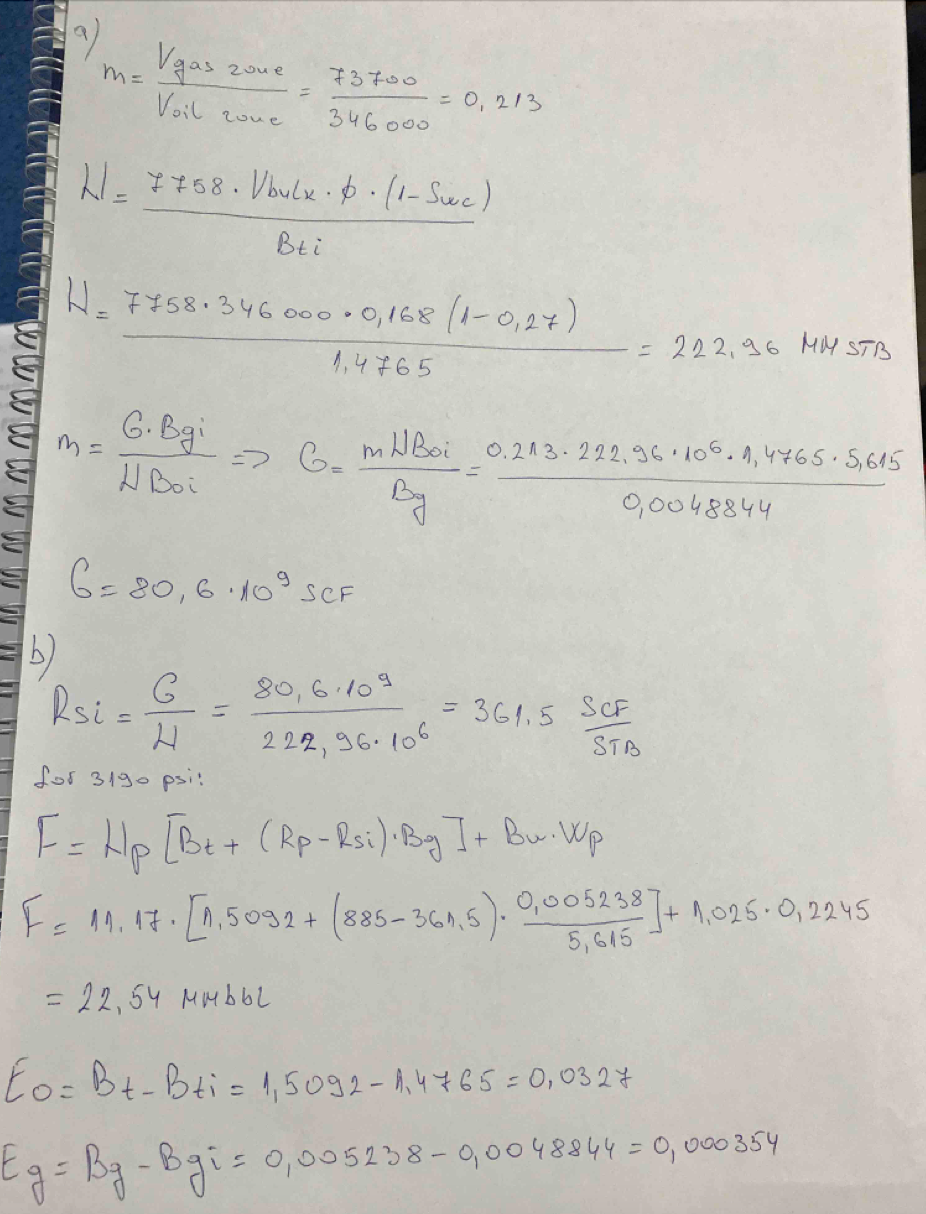 a)
m = Vgas zone / Voil zone = 73700 / 346000 = 0,213
N = 7758 · Vbulk · ϕ · (1 - Swc) / Bti
N = 7758 · 346 000 · 0,168 (1 - 0,27) / 1,4765 = 222,96 MM STB
m = G · Bgi / N Boi => G = m N Boi / Bg = 0.213 · 222,96 · 10⁶ · 1,4765 · 5,615 / 0,0048844
G = 80,6 · 10⁹ SCF
b)
Rsi = G / N = 80,6 · 10⁹ / 222,96 · 10⁶ = 361,5 SCF / STB
for 3190 psi:
F = Np [Bt + (Rp - Rsi) · Bg] + Bw · Wp
F = 11,17 · [1,5092 + (885 - 361,5) · 0,005238 / 5,615] + 1,025 · 0,2245
= 22,54 MMbbl
Eo = Bt - Bti = 1,5092 - 1,4765 = 0,0327
Eg = Bg - Bgi = 0,005238 - 0,0048844 = 0,000354